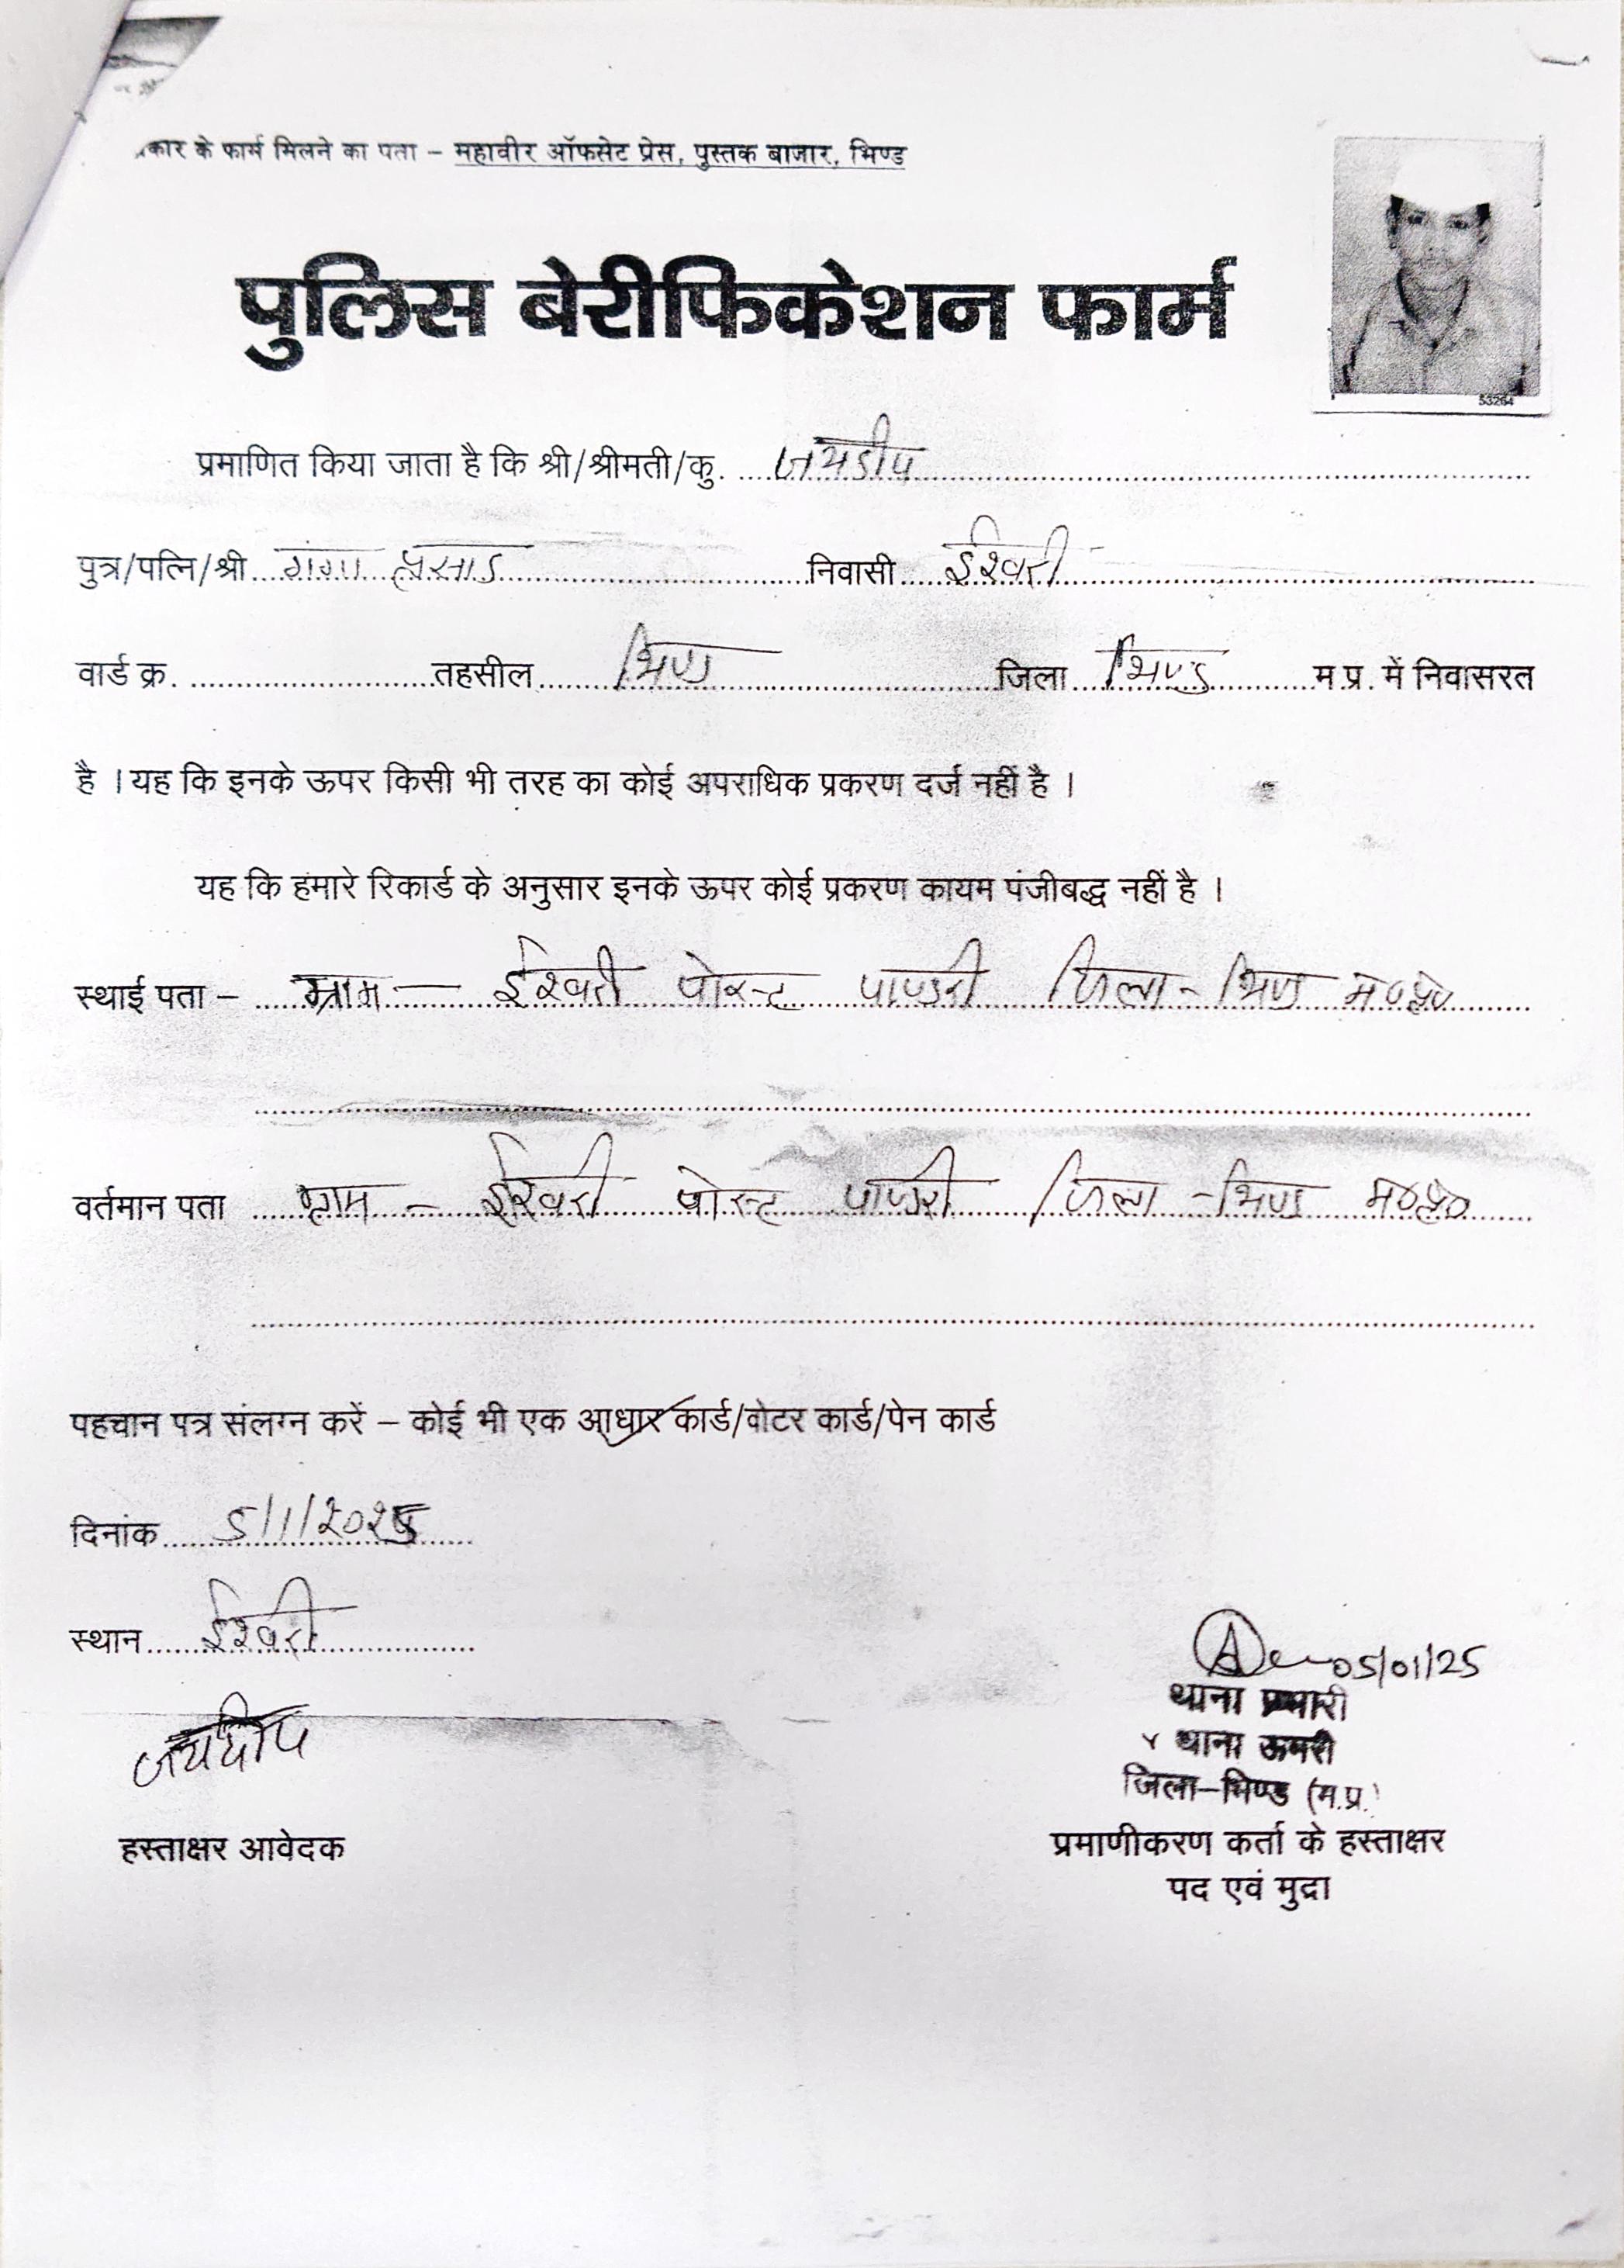 कार के फार्म मिलने का पता – महावीर ऑफसेट प्रेस, पुस्तक बाजार, भिण्ड
53264
पुलिस बेरीफिकेशन फार्म
प्रमाणित किया जाता है कि श्री/श्रीमती/कु. जयडीप
पुत्र/पत्नि/श्री गंगा प्रसाड निवासी ईश्वरी
वार्ड क्र. तहसील भिण्ड जिला भिण्ड म.प्र. में निवासरत
है । यह कि इनके ऊपर किसी भी तरह का कोई अपराधिक प्रकरण दर्ज नहीं है ।
यह कि हमारे रिकार्ड के अनुसार इनके ऊपर कोई प्रकरण कायम पंजीबद्ध नहीं है ।
स्थाई पता – ग्राम — ईश्वरी पोस्ट पाण्डरी जिला - भिण्ड म०प्र०
वर्तमान पता ग्राम - ईश्वरी पोस्ट पाण्डरी जिला - भिण्ड म०प्र०
पहचान पत्र संलग्न करें – कोई भी एक आधार कार्ड/वोटर कार्ड/पेन कार्ड
दिनांक 5/1/2025
स्थान ईश्वरी
05/01/25
थाना प्रभारी
थाना ऊमरी
जिला–भिण्ड (म.प्र.)
जयदीप
हस्ताक्षर आवेदक
प्रमाणीकरण कर्ता के हस्ताक्षर
पद एवं मुद्रा